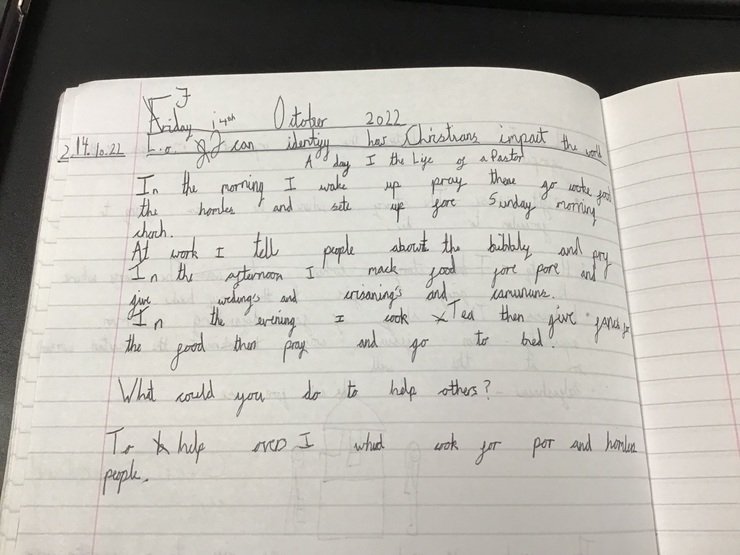 Friday 14th October 2022
2.14.10.22 L.o I can identify how Christians impact the world
A day I the Life of a Pastor
In the morning I wake up pray thene go wooke food
the homles and sete up fore Sunday morning
choch.
At work I tell people about the bibbaly and pry
In the afternoon I mack food fore pore and
give wedings and crisaning's and
In the evening I cook Tea then give fancs for
the food then pray and go to bed.
What could you do to help others?
To help I whud cook for por and homles
people.